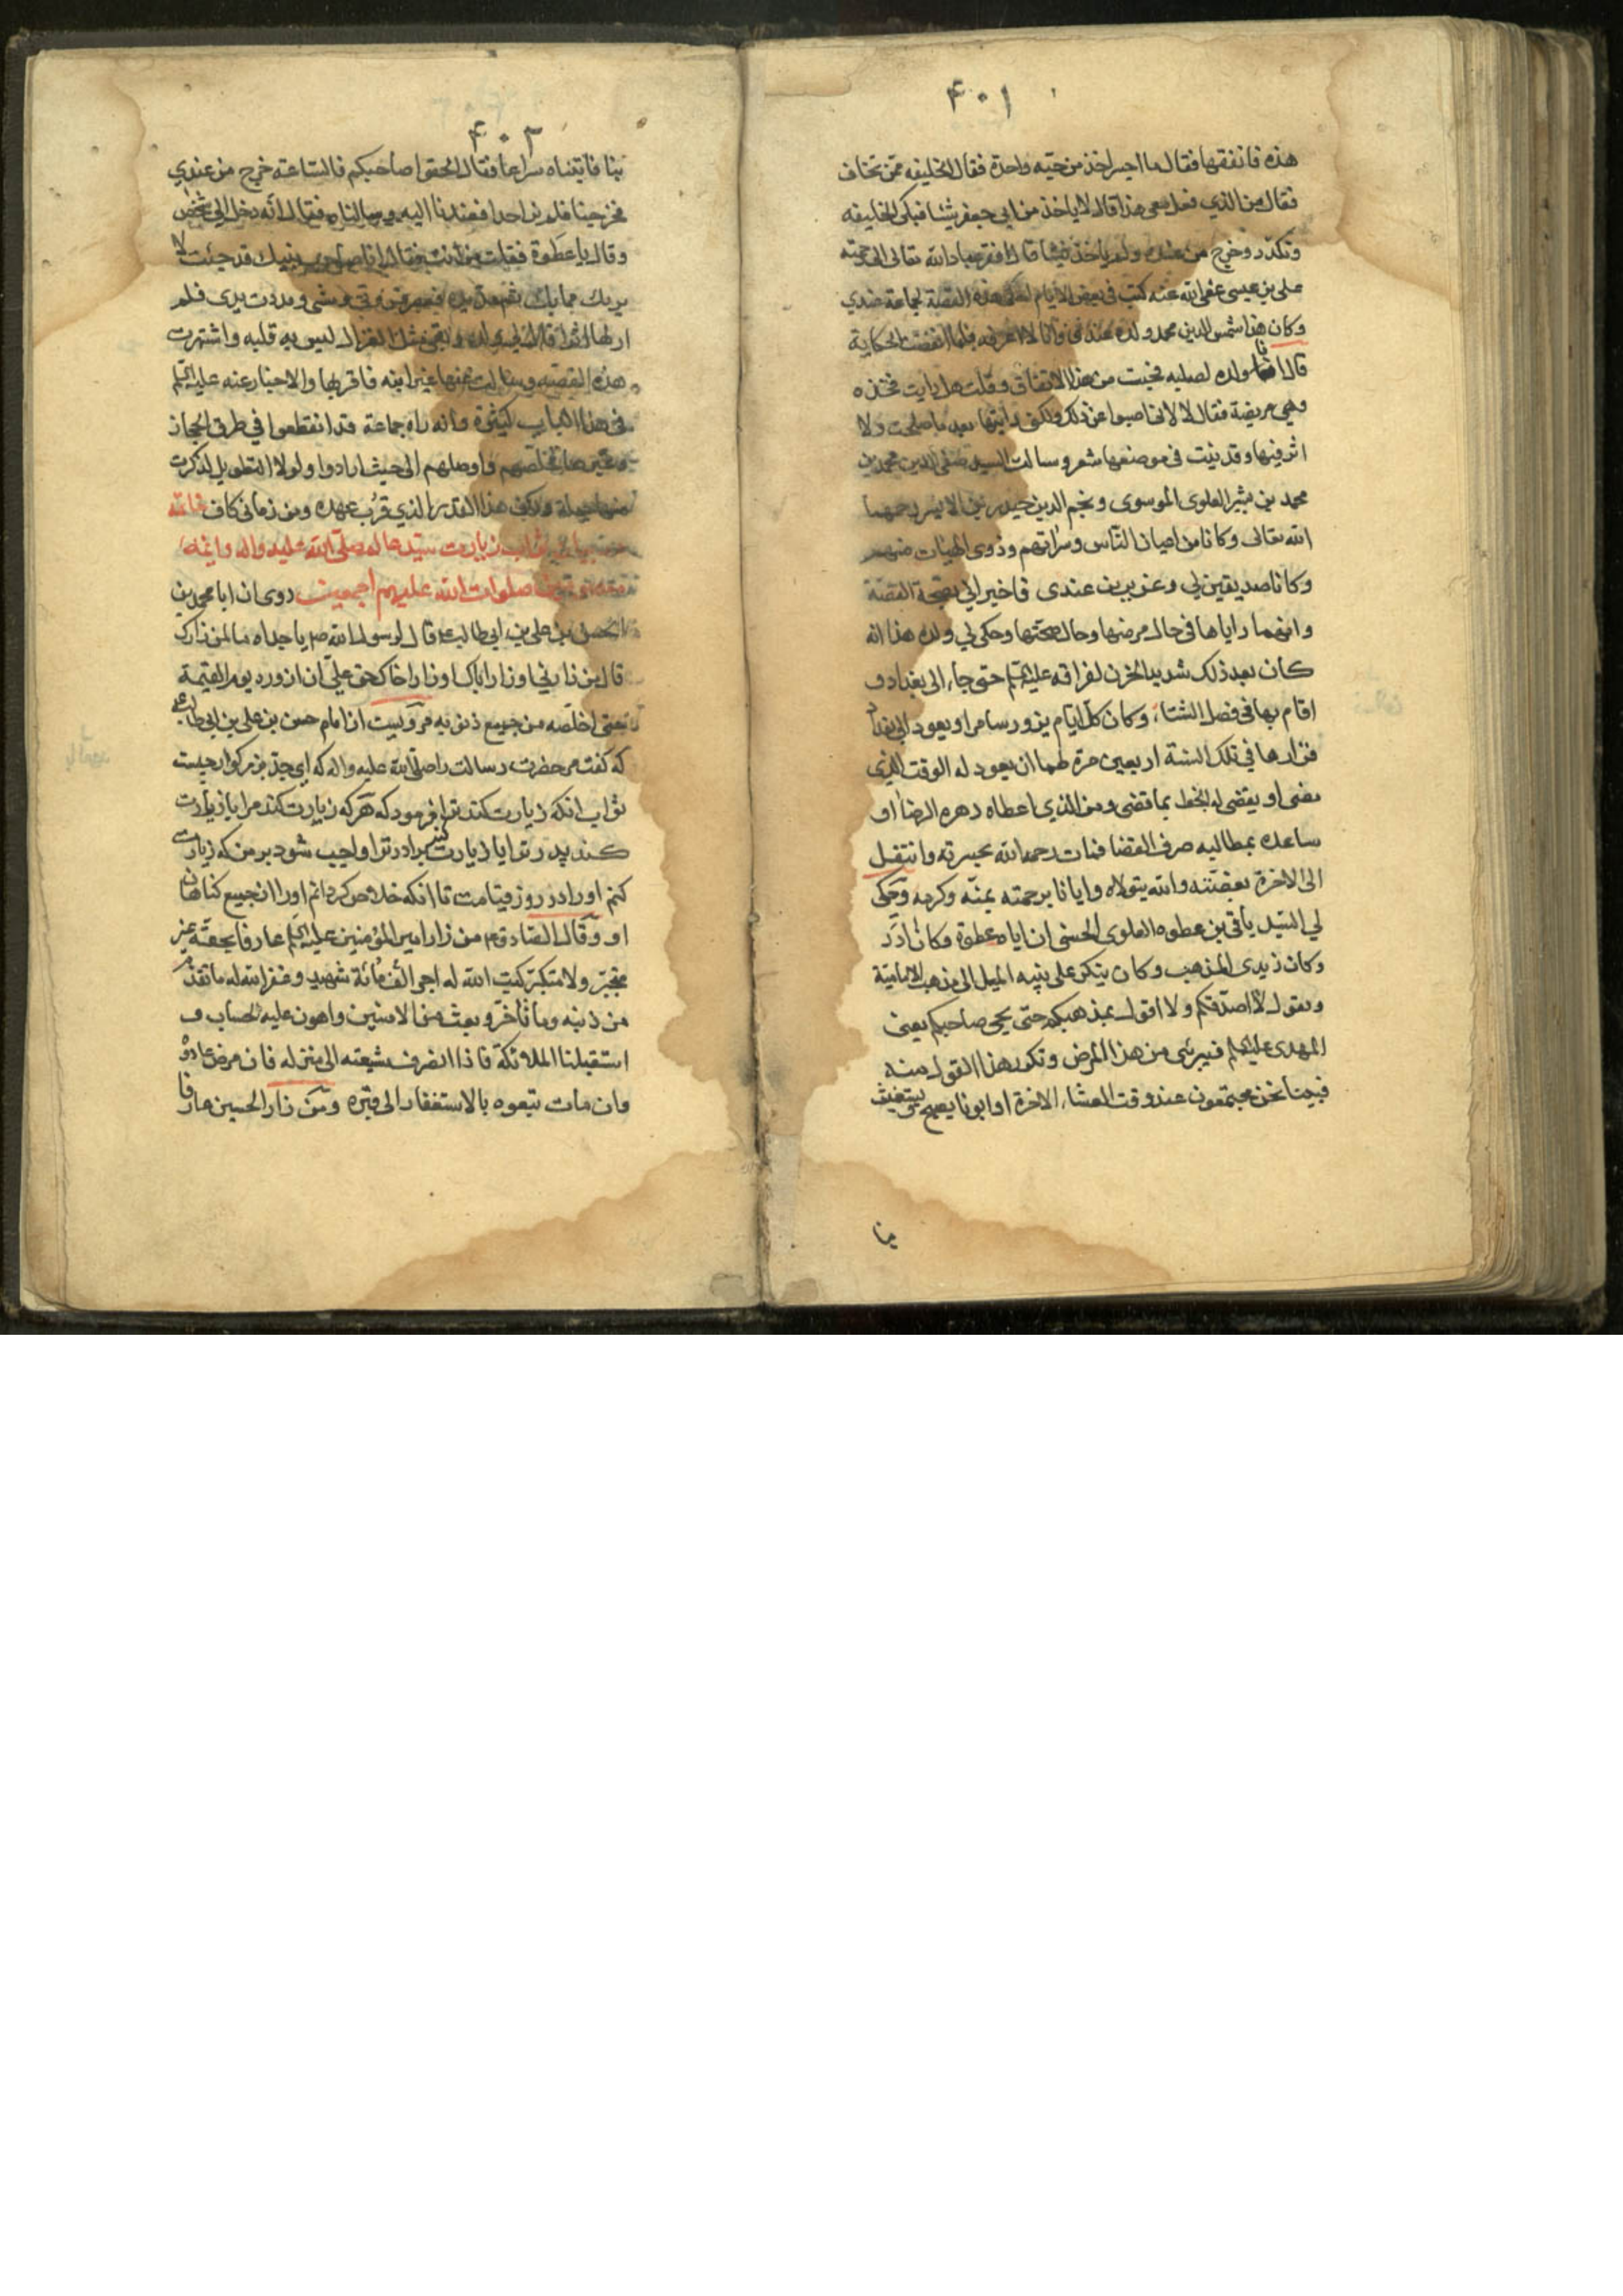 ٤٠١
هذه فانفقها فقال ما اجسر اخذ منه حبّه واحدة فقال الخليفه ممّن تخاف
فقال من الذي فعل معي هذا قال لا ياخذ من ابي جعفر شيئا فبكى الخليفه
وتكدّر وخرج من عنده ولم ياخذ شيئا قال افقر عباد الله تعالى الى رحمته
علي بن عيسى عفى الله عنه كنت في بعض الايام احكي هذه القصّة لجماعة عندي
وكان هذا شمس الدين محمد ولده عندي وانا لا اعرفه فلما انقضت الحكاية
قال انا ولده لصلبه فعجبت من هذا الاتفاق وقلت هل رايت فخذه
وهي مريضة فقال لا لاني اصبوا عن ذلك ولكني رايتها بعد ما صلحت ولا
اثر فيها وقد نبت في موضعها شعر وسالت السيد صفي الدين محمد بن
محمد بن بشير العلوى الموسوى ونجم الدين حيدر بن الايسر رحمهما
الله تعالى وكانا من اعيان النّاس وسراتهم وذوى الهيئات منهم
وكانا صديقين لي وعزيزين عندى فاخبراني بصحة القصّة
وانهما راياها في حال مرضها وحال صحتها وحكى لي ولده هذا انه
كان بعد ذلك شديد الحزن لفراقه عليه السلم حتى جاء الى بغداد و
اقام بها في فصل الشتاء، وكان كلّ ايام يزور سامرا ويعود الى بغداد
فزارها في تلك السنة اربعين مرة طمعا ان يعود له الوقت الذي
مضى او يقضى له الحظ بما قضى ومن الذي اعطاه دهره الرضا او
ساعده بمطالبه صرف القضا فمات رحمه الله بحسرته وانتقل
الى الاخرة بغصّته والله يتولاه وايانا برحمته بمنّه وكرمه وحكى
لي السيّد باقي بن عطوه العلوى الحسني ان اباه عطوة وكان ادر
وكان زيدى المذهب وكان ينكر على بنيه الميل الى مذهب الاماميّة
ويقول لا اصدّقكم ولا اقول بمذهبكم حتّى يجي صاحبكم يعني
المهدى عليه السلم فيبرئني من هذا المرض وتكرر هذا القول منه
فبينا نحن مجتمعون عند وقت العشاء الاخرة اذا ابونا يصيح يستغيث
بنا
٤٠٢
بنا فاتيناه سراعا فقال الحقوا صاحبكم فالساعة خرج من عندي
فخرجنا فلم نر احدا فعدنا اليه وسالناه فقال انّه دخل الي شخص
وقال يا عطوة فقلت من انت فقال انا صاحب بنيك قد جئت لا
بريك مما بك ثم مدّ يده فعصر قروتي ومشى ومددت يدى فلم
ار لها اثرا قال لي ولده وبقي مثل الغزال ليس به قلبه واشتهرت
هذه القصّه وسالت عنها غير ابنه فاقر بها والاخبار عنه عليه السلم
في هذا الباب كثيرة وانه راه جماعة قد انقطعوا في طرق الحجاز
وغيرها فخلّصهم واوصلهم الى حيث ارادوا ولولا التطويل لذكرت
منها جملة ولكن هذا القدر الذي قرُب عهده ومن زماني كاف خاتمه
در بيان ثواب زيارت سيّد عالم صلّى الله عليه واله وائمّه
معصومين صلوات الله عليهم اجمعين روى ان ابا محمد بن
الحسن بن علي بن ابي طالب ع قال لرسول الله ص يا جداه ما لمن زارك
قال من زارني او زار اباك او زار اخاك حقّ عليّ ان ازوره يوم القيمة
حتى اخلّصه من جميع ذنوبه مرويست از امام حسن بن علي بن ابي طالب ع
كه كفت مر حضرت رسالت را صلّى الله عليه واله كه اى جدّ بزركوار چيست
ثواب انكه زيارت كند ترا فرمود كه هركه زيارت كند مرا يا زيارت
كند پدر ترا يا زيارت كند برادر ترا واجب شود بر من كه زيارت
كنم او را در روز قيامت تا انكه خلاص كردانم او را از جميع كناهان
او وقال الصادق ع من زار امير المؤمنين عليه السلم عارفا بحقّه غير
متجبّر ولا متكبّر كتب الله له اجر الف مائة شهيد وغفر الله له ما تقدّم
من ذنبه وما تاخّر وبعث من الامنين واهون عليه الحساب و
استقبلتا الملائكة فاذا انصرف شيعته الى منزله فان مرض عادوه
وان مات تبعوه بالاستغفار الى قبره ومن زار الحسين عارفا